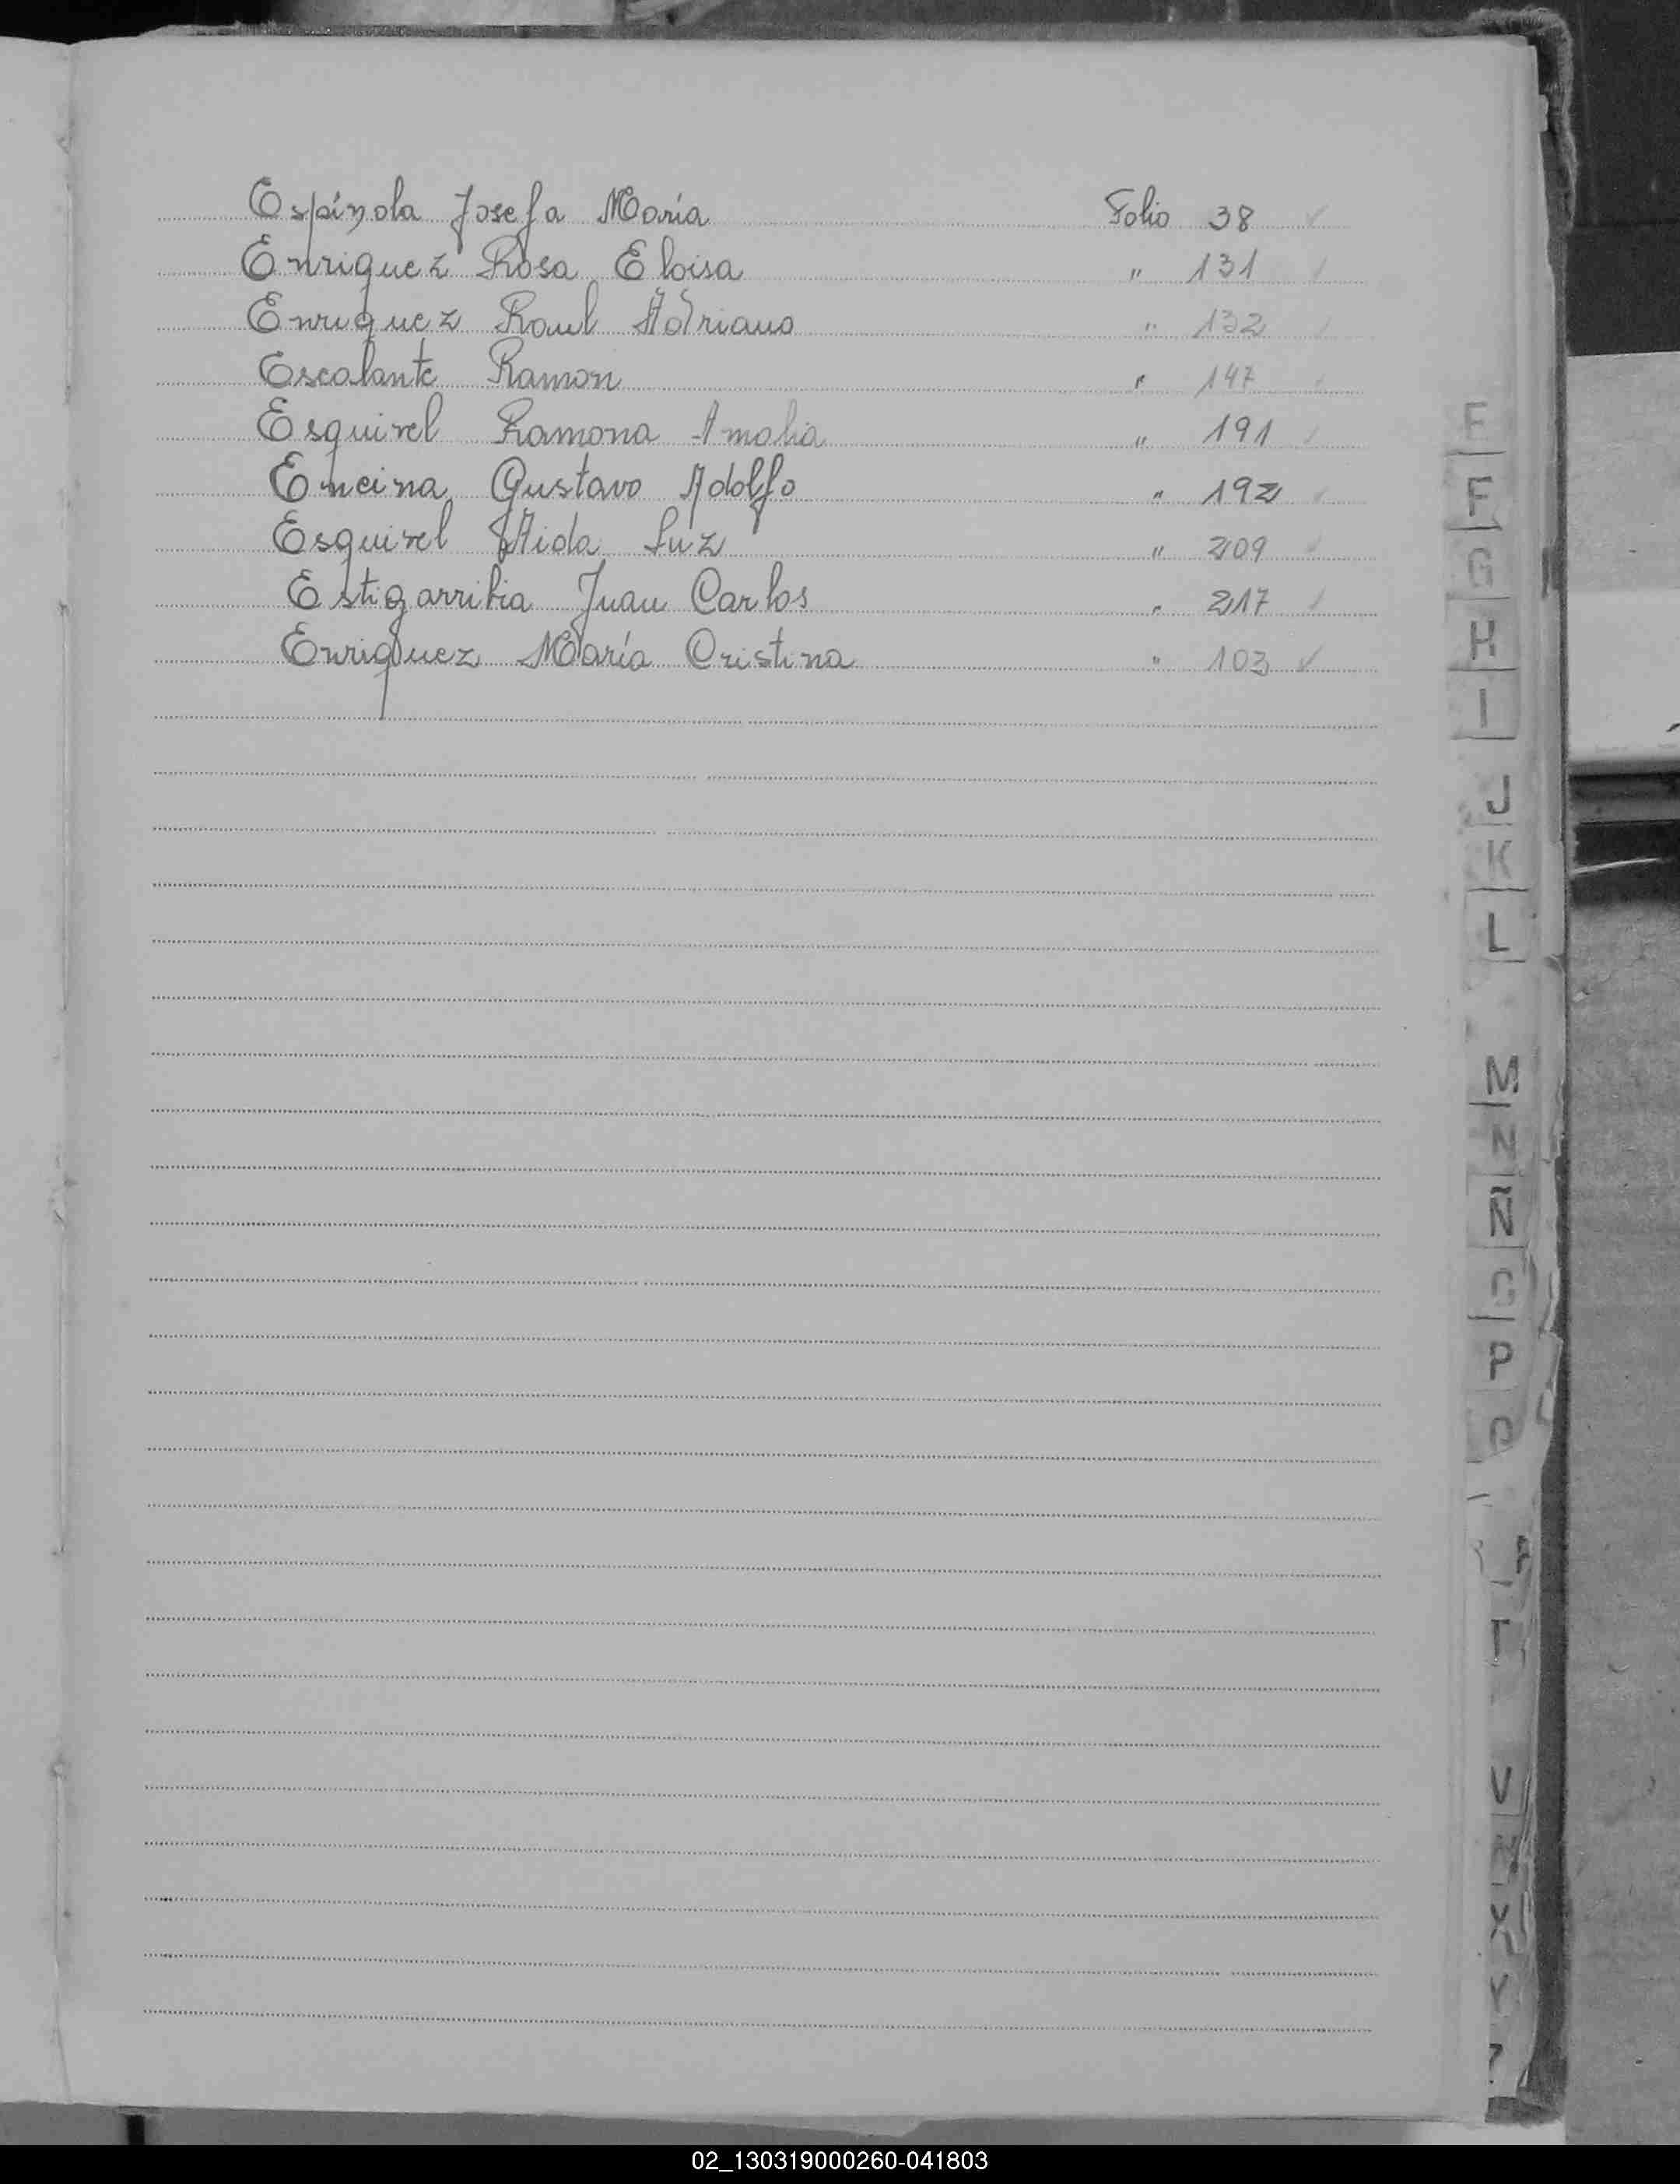 Espínola Josefa María Folio 38 ✓
Enriquez Rosa Eloisa " 131 ✓
Enriquez Raul Adriano " 132 ✓
Escalante Ramon " 147 ✓
Esquivel Ramona Amalia " 191 ✓
Encina Gustavo Adolfo " 192 ✓
Esquivel Aida Luz " 209 ✓
Estigarribia Juan Carlos " 217 ✓
Enriquez María Cristina " 103 ✓
E
F
G
H
I
J
K
L
M
N
Ñ
P
Q
T
V
X
Y
Z
02_130319000260-041803